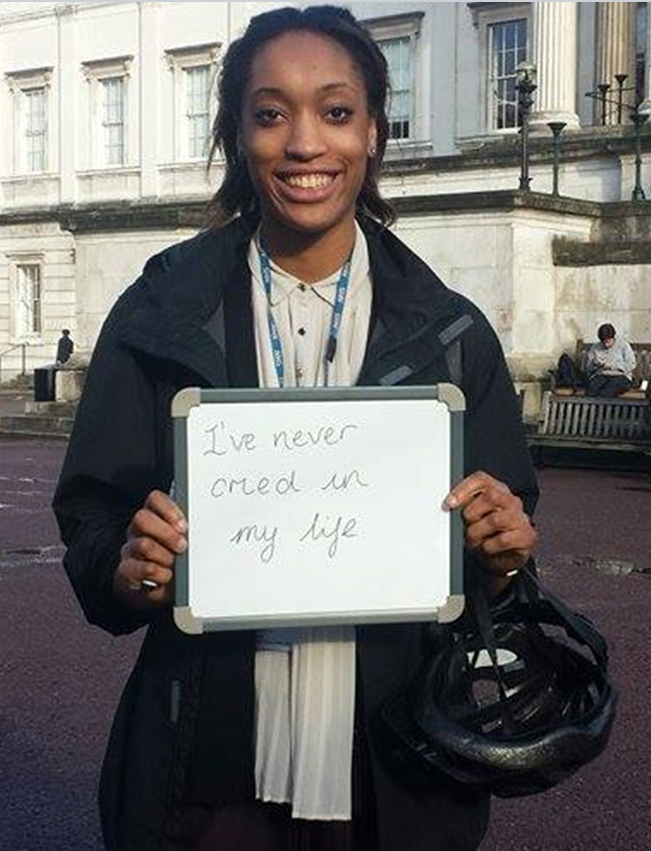 I've never
cried in
my life